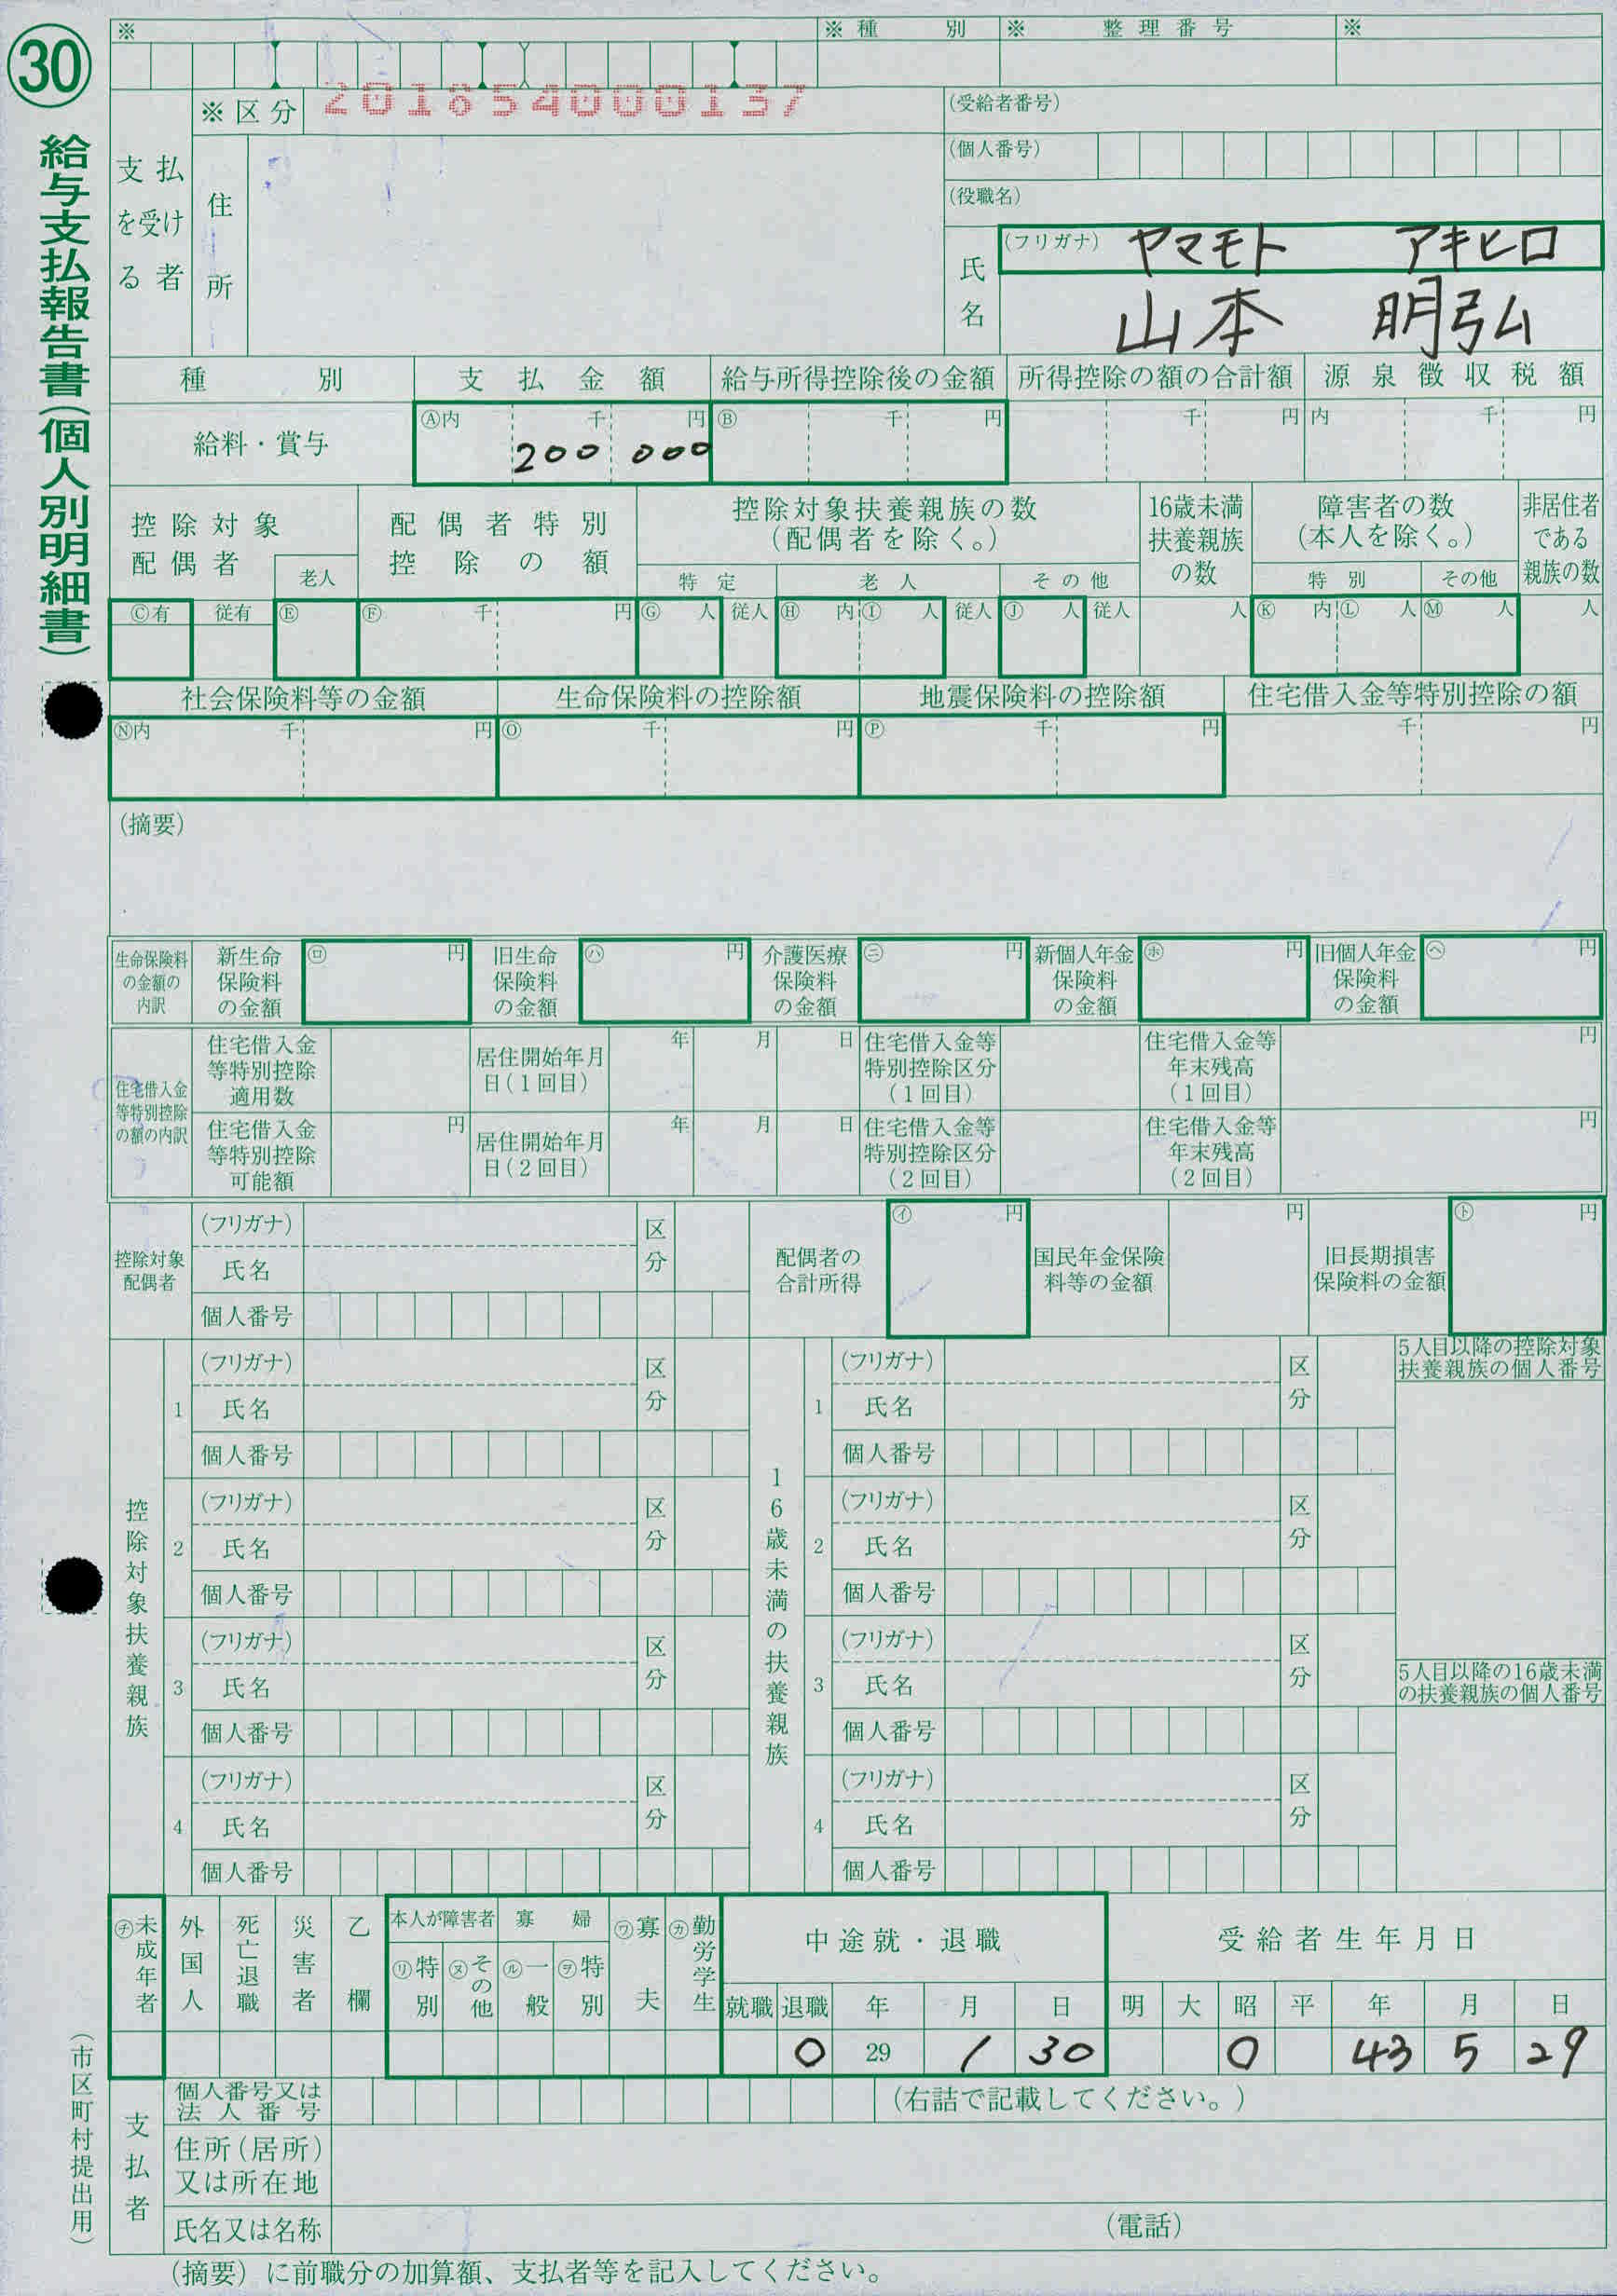 ㉚
給与支払報告書(個人別明細書)
(市区町村提出用)
※
※ 種 別
※ 整 理 番 号
※
※ 区 分
201854000137
支払を受ける者
住所
(受給者番号)
(個人番号)
(役職名)
氏名
(フリガナ) ヤマモト アキヒロ
山本 明弘
種 別
支 払 金 額
給与所得控除後の金額
所得控除の額の合計額
源 泉 徴 収 税 額
給料・賞与
Ⓐ内 千 円
200 000
Ⓑ 千 円
千 円
内 千 円
控除対象配偶者
老人
配偶者特別控除の額
控除対象扶養親族の数(配偶者を除く。)
特 定
老 人
そ の 他
16歳未満扶養親族の数
障害者の数(本人を除く。)
特 別
その他
非居住者である親族の数
Ⓒ有 従有 Ⓔ Ⓕ 千 円 Ⓖ 人 従人 Ⓗ 内 Ⓘ 人 従人 Ⓙ 人 従人 人 Ⓚ 内 Ⓛ 人 Ⓜ 人 人
社会保険料等の金額
生命保険料の控除額
地震保険料の控除額
住宅借入金等特別控除の額
Ⓝ内 千 円 Ⓞ 千 円 Ⓟ 千 円 千 円
(摘要)
生命保険料の金額の内訳
新生命保険料の金額 ㋺ 円
旧生命保険料の金額 ㋩ 円
介護医療保険料の金額 ㋥ 円
新個人年金保険料の金額 ㋭ 円
旧個人年金保険料の金額 ㋬ 円
住宅借入金等特別控除の額の内訳
住宅借入金等特別控除適用数
居住開始年月日(1回目) 年 月 日
住宅借入金等特別控除区分(1回目)
住宅借入金等年末残高(1回目) 円
住宅借入金等特別控除可能額 円
居住開始年月日(2回目) 年 月 日
住宅借入金等特別控除区分(2回目)
住宅借入金等年末残高(2回目) 円
控除対象配偶者
(フリガナ)
氏名
区分
個人番号
配偶者の合計所得 ㋑ 円
国民年金保険料等の金額 円
旧長期損害保険料の金額 ㋣ 円
控除対象扶養親族
1
(フリガナ)
氏名
区分
個人番号
2
(フリガナ)
氏名
区分
個人番号
3
(フリガナ)
氏名
区分
個人番号
4
(フリガナ)
氏名
区分
個人番号
16歳未満の扶養親族
1
(フリガナ)
氏名
区分
個人番号
2
(フリガナ)
氏名
区分
個人番号
3
(フリガナ)
氏名
区分
個人番号
4
(フリガナ)
氏名
区分
個人番号
5人目以降の控除対象扶養親族の個人番号
5人目以降の16歳未満の扶養親族の個人番号
㋠未成年者
外国人
死亡退職
災害者
乙欄
本人が障害者
㋷特別
㋦その他
寡 婦
㋸一般
㋾特別
㋻寡夫
㋕勤労学生
中途就・退職
就職 退職 年 月 日
0 29 1 30
受給者生年月日
明 大 昭 平 年 月 日
0 43 5 29
支払者
個人番号又は法人番号
(右詰で記載してください。)
住所(居所)又は所在地
氏名又は名称
(電話)
(摘要)に前職分の加算額、支払者等を記入してください。